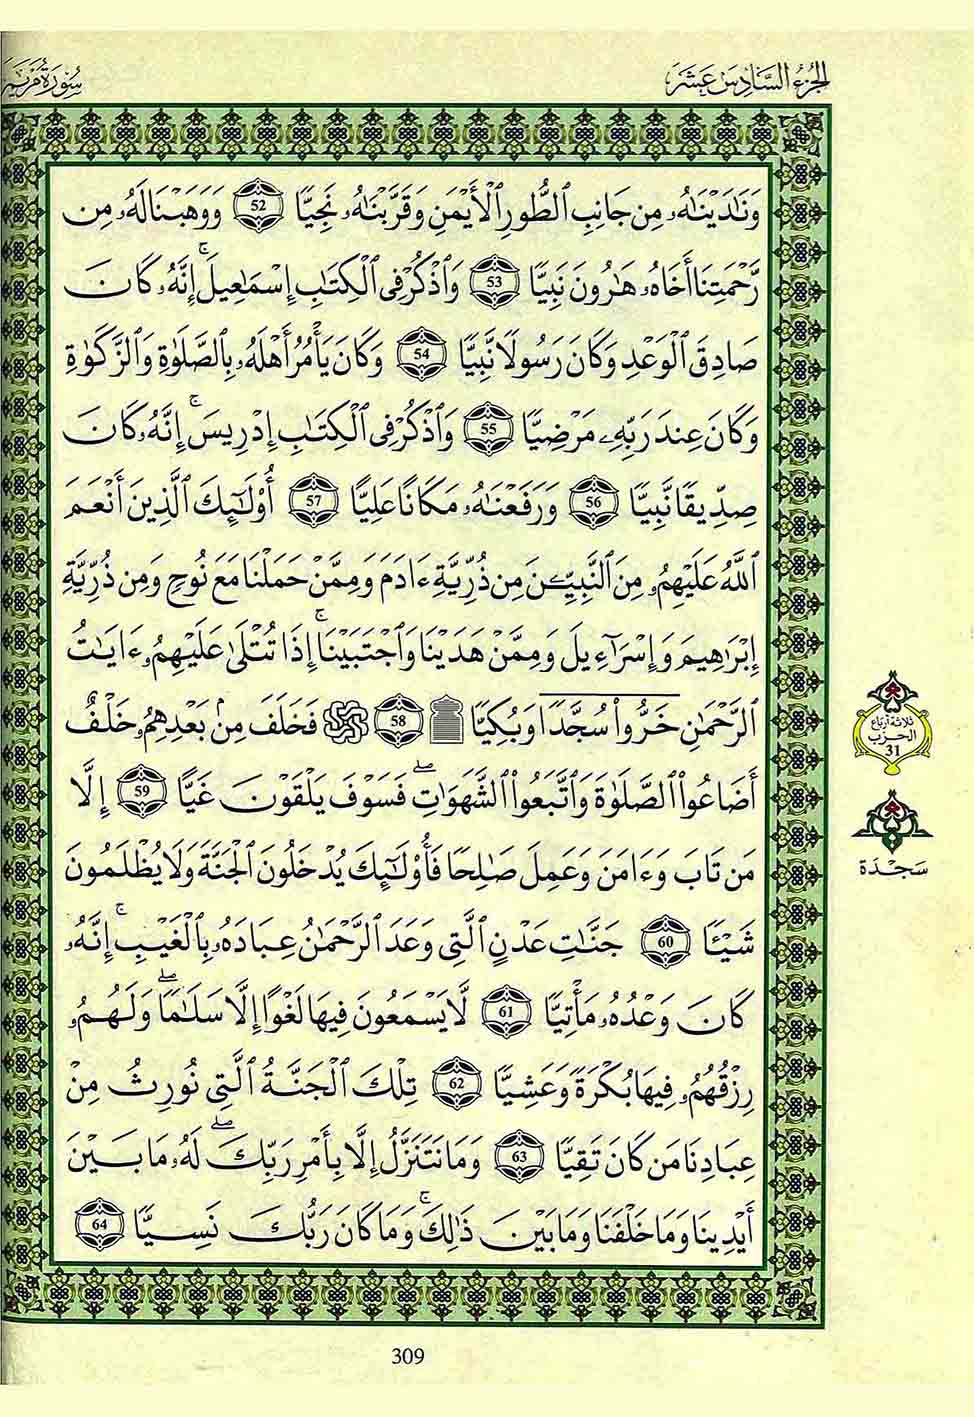 الجزء السادس عشر
سورة مريم
وَنَٰدَيْنَٰهُۥ مِن جَانِبِ ٱلطُّورِ ٱلْأَيْمَنِ وَقَرَّبْنَٰهُۥ نَجِيًّا 52 وَوَهَبْنَا لَهُۥ مِن
رَّحْمَتِنَا أَخَاهُۥ هَٰرُونَ نَبِيًّا 53 وَٱذْكُرْ فِى ٱلْكِتَٰبِ إِسْمَٰعِيلَۚ إِنَّهُۥ كَانَ
صَادِقَ ٱلْوَعْدِ وَكَانَ رَسُولًا نَّبِيًّا 54 وَكَانَ يَأْمُرُ أَهْلَهُۥ بِٱلصَّلَوٰةِ وَٱلزَّكَوٰةِ
وَكَانَ عِندَ رَبِّهِۦ مَرْضِيًّا 55 وَٱذْكُرْ فِى ٱلْكِتَٰبِ إِدْرِيسَۚ إِنَّهُۥ كَانَ
صِدِّيقًا نَّبِيًّا 56 وَرَفَعْنَٰهُۥ مَكَانًا عَلِيًّا 57 أُوْلَٰٓئِكَ ٱلَّذِينَ أَنْعَمَ
ٱللَّهُ عَلَيْهِمُۥ مِنَ ٱلنَّبِيِّـۧنَ مِن ذُرِّيَّةِ ءَادَمَ وَمِمَّنْ حَمَلْنَا مَعَ نُوحٍ وَمِن ذُرِّيَّةِ
إِبْرَٰهِيمَ وَإِسْرَٰٓءِيلَ وَمِمَّنْ هَدَيْنَا وَٱجْتَبَيْنَاۚ إِذَا تُتْلَىٰ عَلَيْهِمُۥ ءَايَٰتُ
ٱلرَّحْمَٰنِ خَرُّواْ سُجَّدًا وَبُكِيًّا ۩ 58 ۞ فَخَلَفَ مِنۢ بَعْدِهِمُۥ خَلْفٌ
أَضَاعُواْ ٱلصَّلَوٰةَ وَٱتَّبَعُواْ ٱلشَّهَوَٰتِۖ فَسَوْفَ يَلْقَوْنَ غَيًّا 59 إِلَّا
مَن تَابَ وَءَامَنَ وَعَمِلَ صَٰلِحًا فَأُوْلَٰٓئِكَ يُدْخَلُونَ ٱلْجَنَّةَ وَلَا يُظْلَمُونَ
شَيْـًٔا 60 جَنَّٰتِ عَدْنٍ ٱلَّتِى وَعَدَ ٱلرَّحْمَٰنُ عِبَادَهُۥ بِٱلْغَيْبِۚ إِنَّهُۥ
كَانَ وَعْدُهُۥ مَأْتِيًّا 61 لَّا يَسْمَعُونَ فِيهَا لَغْوًا إِلَّا سَلَٰمًاۖ وَلَهُمُۥ
رِزْقُهُمُۥ فِيهَا بُكْرَةً وَعَشِيًّا 62 تِلْكَ ٱلْجَنَّةُ ٱلَّتِى نُورِثُ مِنْ
عِبَادِنَا مَن كَانَ تَقِيًّا 63 وَمَا نَتَنَزَّلُ إِلَّا بِأَمْرِ رَبِّكَۖ لَهُۥ مَا بَيْنَ
أَيْدِينَا وَمَا خَلْفَنَا وَمَا بَيْنَ ذَٰلِكَۚ وَمَا كَانَ رَبُّكَ نَسِيًّا 64
ثلاثة أرباع
الحزب
31
سجدة
309